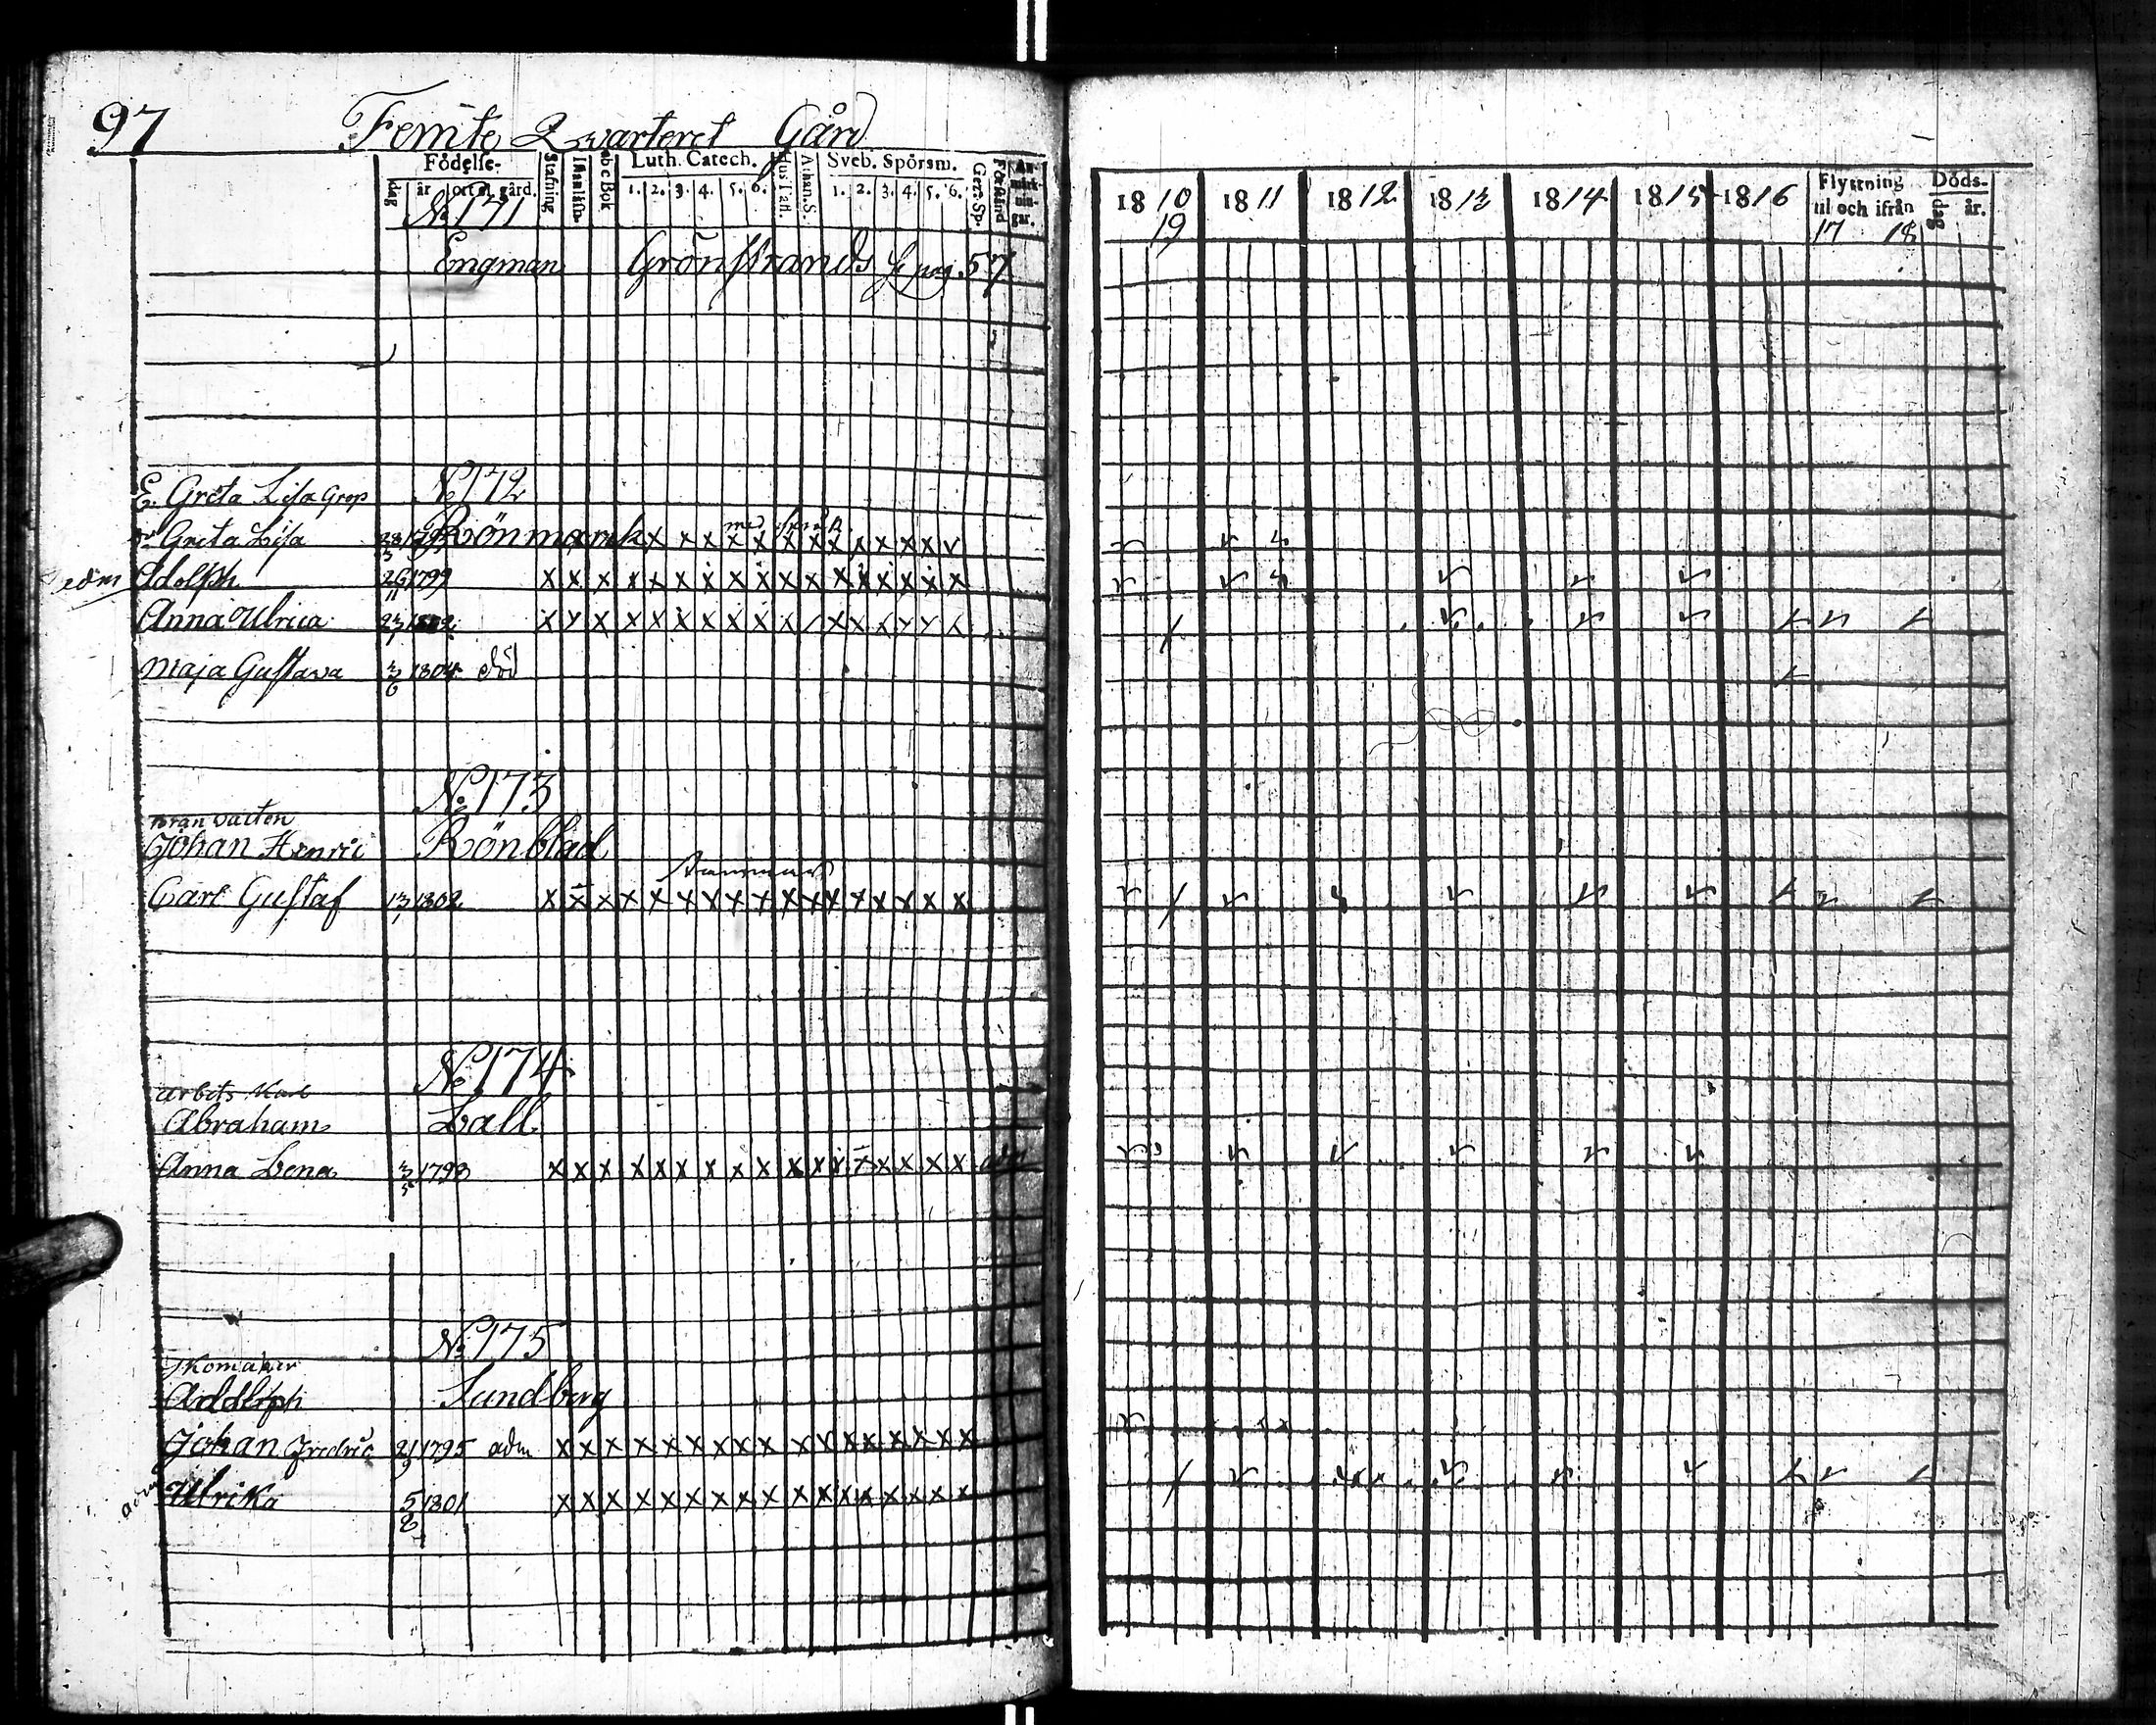 97 Femte Qvarteret Gård
Födelse- Stafning Innanläsn. abc Bok Luth. Catech. Hus Tafl. Athan. S. Sveb. Spörsm. Gerä. Sp. Förstånd An-märk-nin-gar.
dag år ort el. gård. 1. 2. 3. 4. 5. 6. 1. 2. 3. 4. 5. 6.
1810 1811 1812 1813 1814 1815 1816 Flyttning til och ifrån Döds- dag år.
19 17 18
No 171
Engman Grönstrands pag. 57
E. Greta Lisa No 172
Greta Lisa 28/3 Rönmark x x x x x x x x x x x x v
adm Adolph 26/11 1799 x x x x x x x x x x x x x x x x x
Anna Ulrica 1802 x x x x x x x x x x x x x x x x
Maja Gustava 1804 död
No 173
Johan Henric Rönblad
Carl Gustaf 13/1 1802 x x x x x x x x x x x x x x x x x
No 174
arbets Karl
Abraham Lall
Anna Lena 1793 x x x x x x x x x x x x x x x x x adm
No 175
Skomakar
Adolph Sundberg
Johan Fredric 1795 adm x x x x x x x x x x x x x x x x x
adm Ulrika 5/2 1801 x x x x x x x x x x x x x x x x x